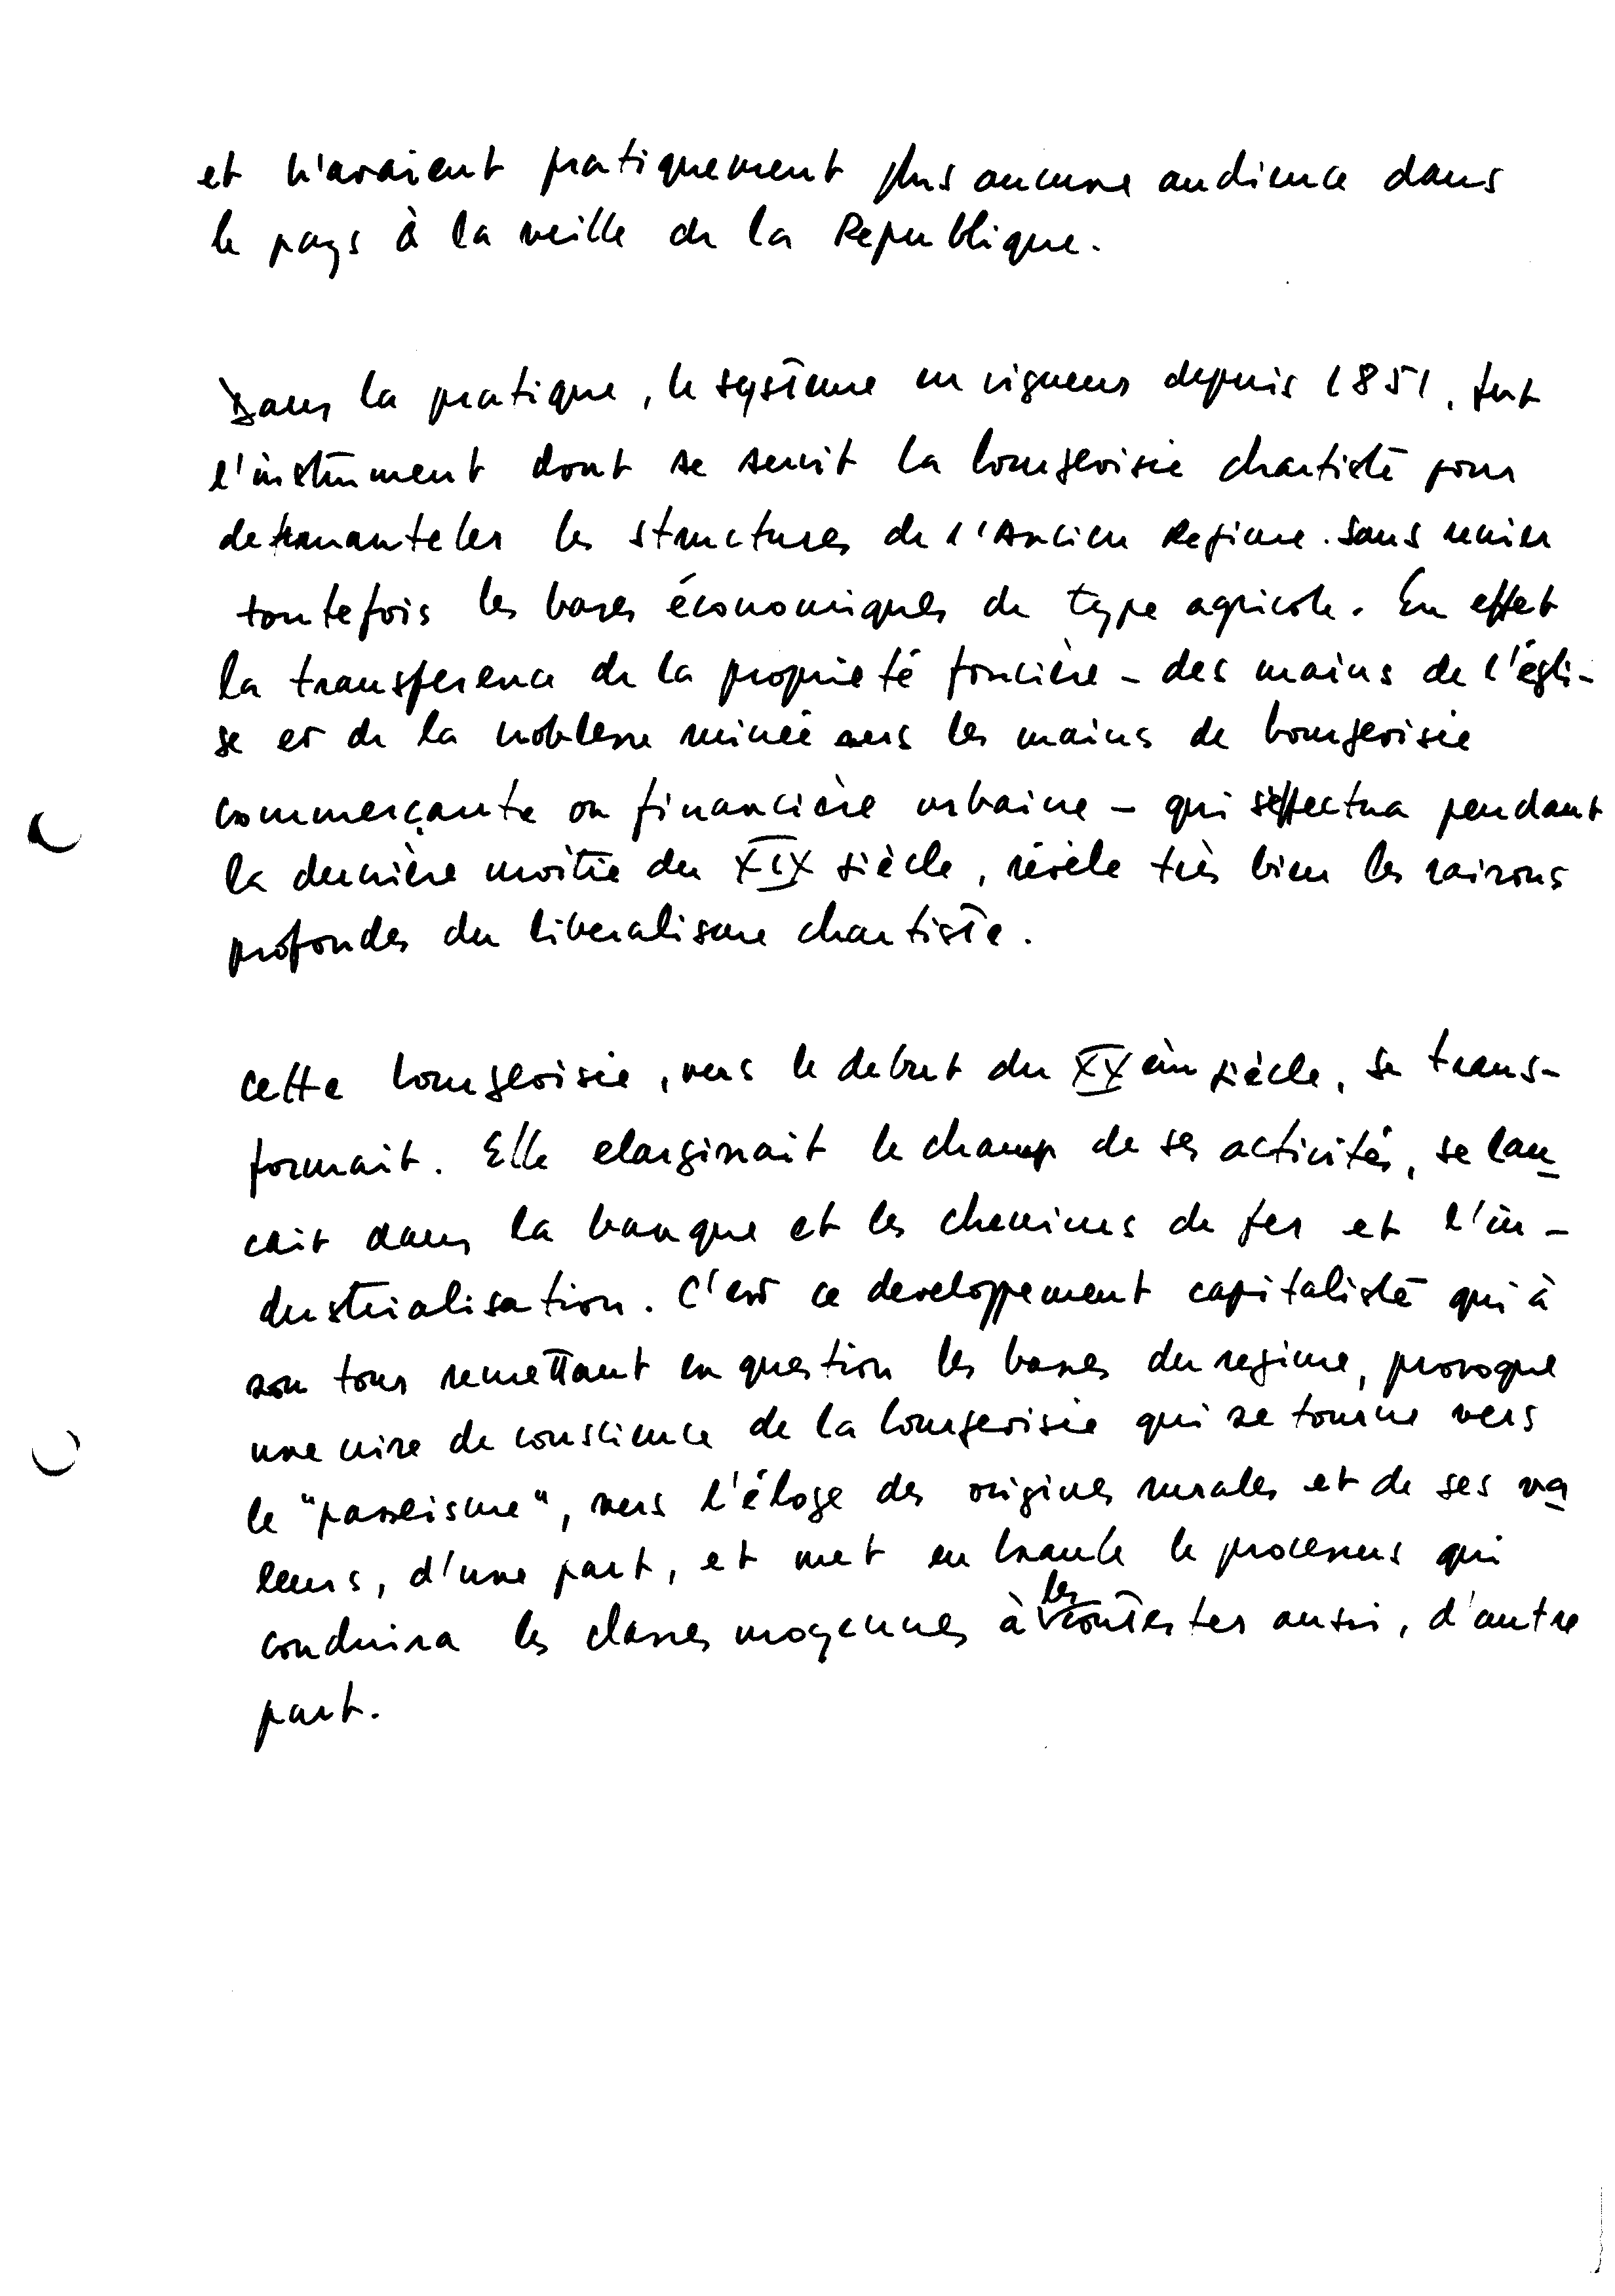 et n'avaient pratiquement plus aucune audience dans
le pays à la veille de la Republique.
Dans la pratique, le système en vigueur depuis 1851, fut
l'instrument dont se servit la bourgeoisie chartiste pour
demanteler les structures de l'Ancien Regime. Sans renier
toutefois les bases économiques de type agricole. En effet
la transference de la proprieté foncière - des mains de l'égli-
se et de la noblesse ruinée vers les mains de bourgeoisie
commerçante ou financière urbaine - qui s'effectua pendant
la dernière moitie du XIX siècle, révèle très bien les raisons
profondes du liberalisme chartiste.
Cette bourgeoisie, vers le debut du XXèm siècle, se trans-
formait. Elle elargissait le champ de ses activités, se lan
cait dans la banque et les chemins de fer et l'in-
dustrialisation. C'est ce developpement capitaliste qui à
son tour remettant en question les bases du regime, provoque
une crise de conscience de la bourgeoisie qui se tourne vers
le "passeisme", vers l'éloge des origines rurales et de ses va
leurs, d'une part, et met en branle le processus qui
conduira les classes moyennes à les contester aussi, d'autre
part.